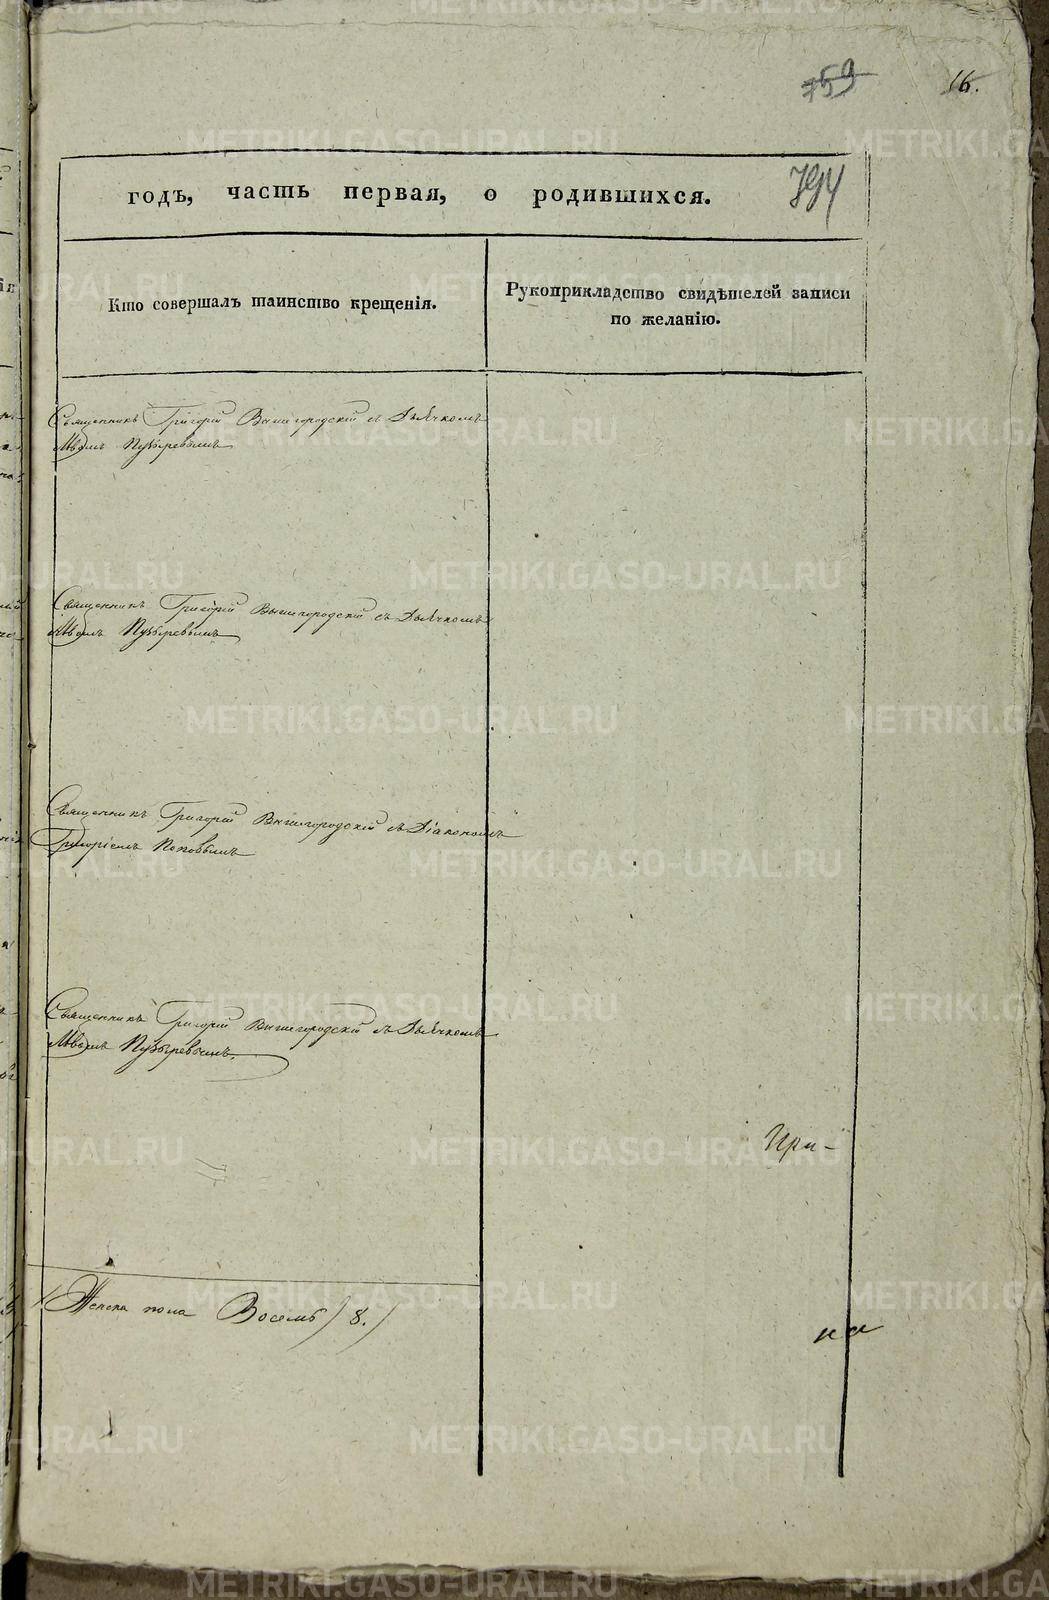 759
16.
794
годъ, часть первая, о родившихся.
Кто совершалъ таинство крещенія.
Рукоприкладство свидѣтелей записи
по желанію.
Священникъ Григорій Вышгородскій съ Дьячкомъ
Львомъ Пузыревымъ
Священникъ Григорій Вышгородскій съ Дьячкомъ
Львомъ Пузыревымъ
Священникъ Григорій Вышгородскій съ Діакономъ
Григоріемъ Поповымъ
Священникъ Григорій Вышгородскій съ Дьячкомъ
Львомъ Пузыревымъ.
При-
Женска пола Восемь / 8. /
METRIKI.GASO-URAL.RU